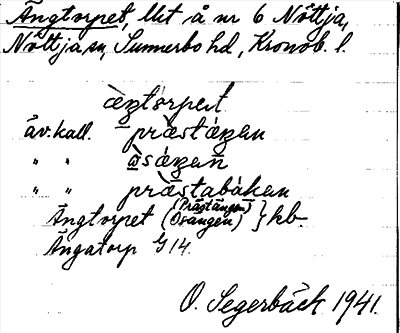 Ängtorpet, lht å nr 6 Nöttja,
Nöttja sn, Sunnerbo hd, Kronob. l.
àŋtorpet
äv. kall. præ̀stáŋan
" " ås̀áŋan
" " præ̀stabákan
Ängtorpet (Prästängen) (Osängen) } hb.
Ängatorp G 14.
O. Segerbäck 1941.